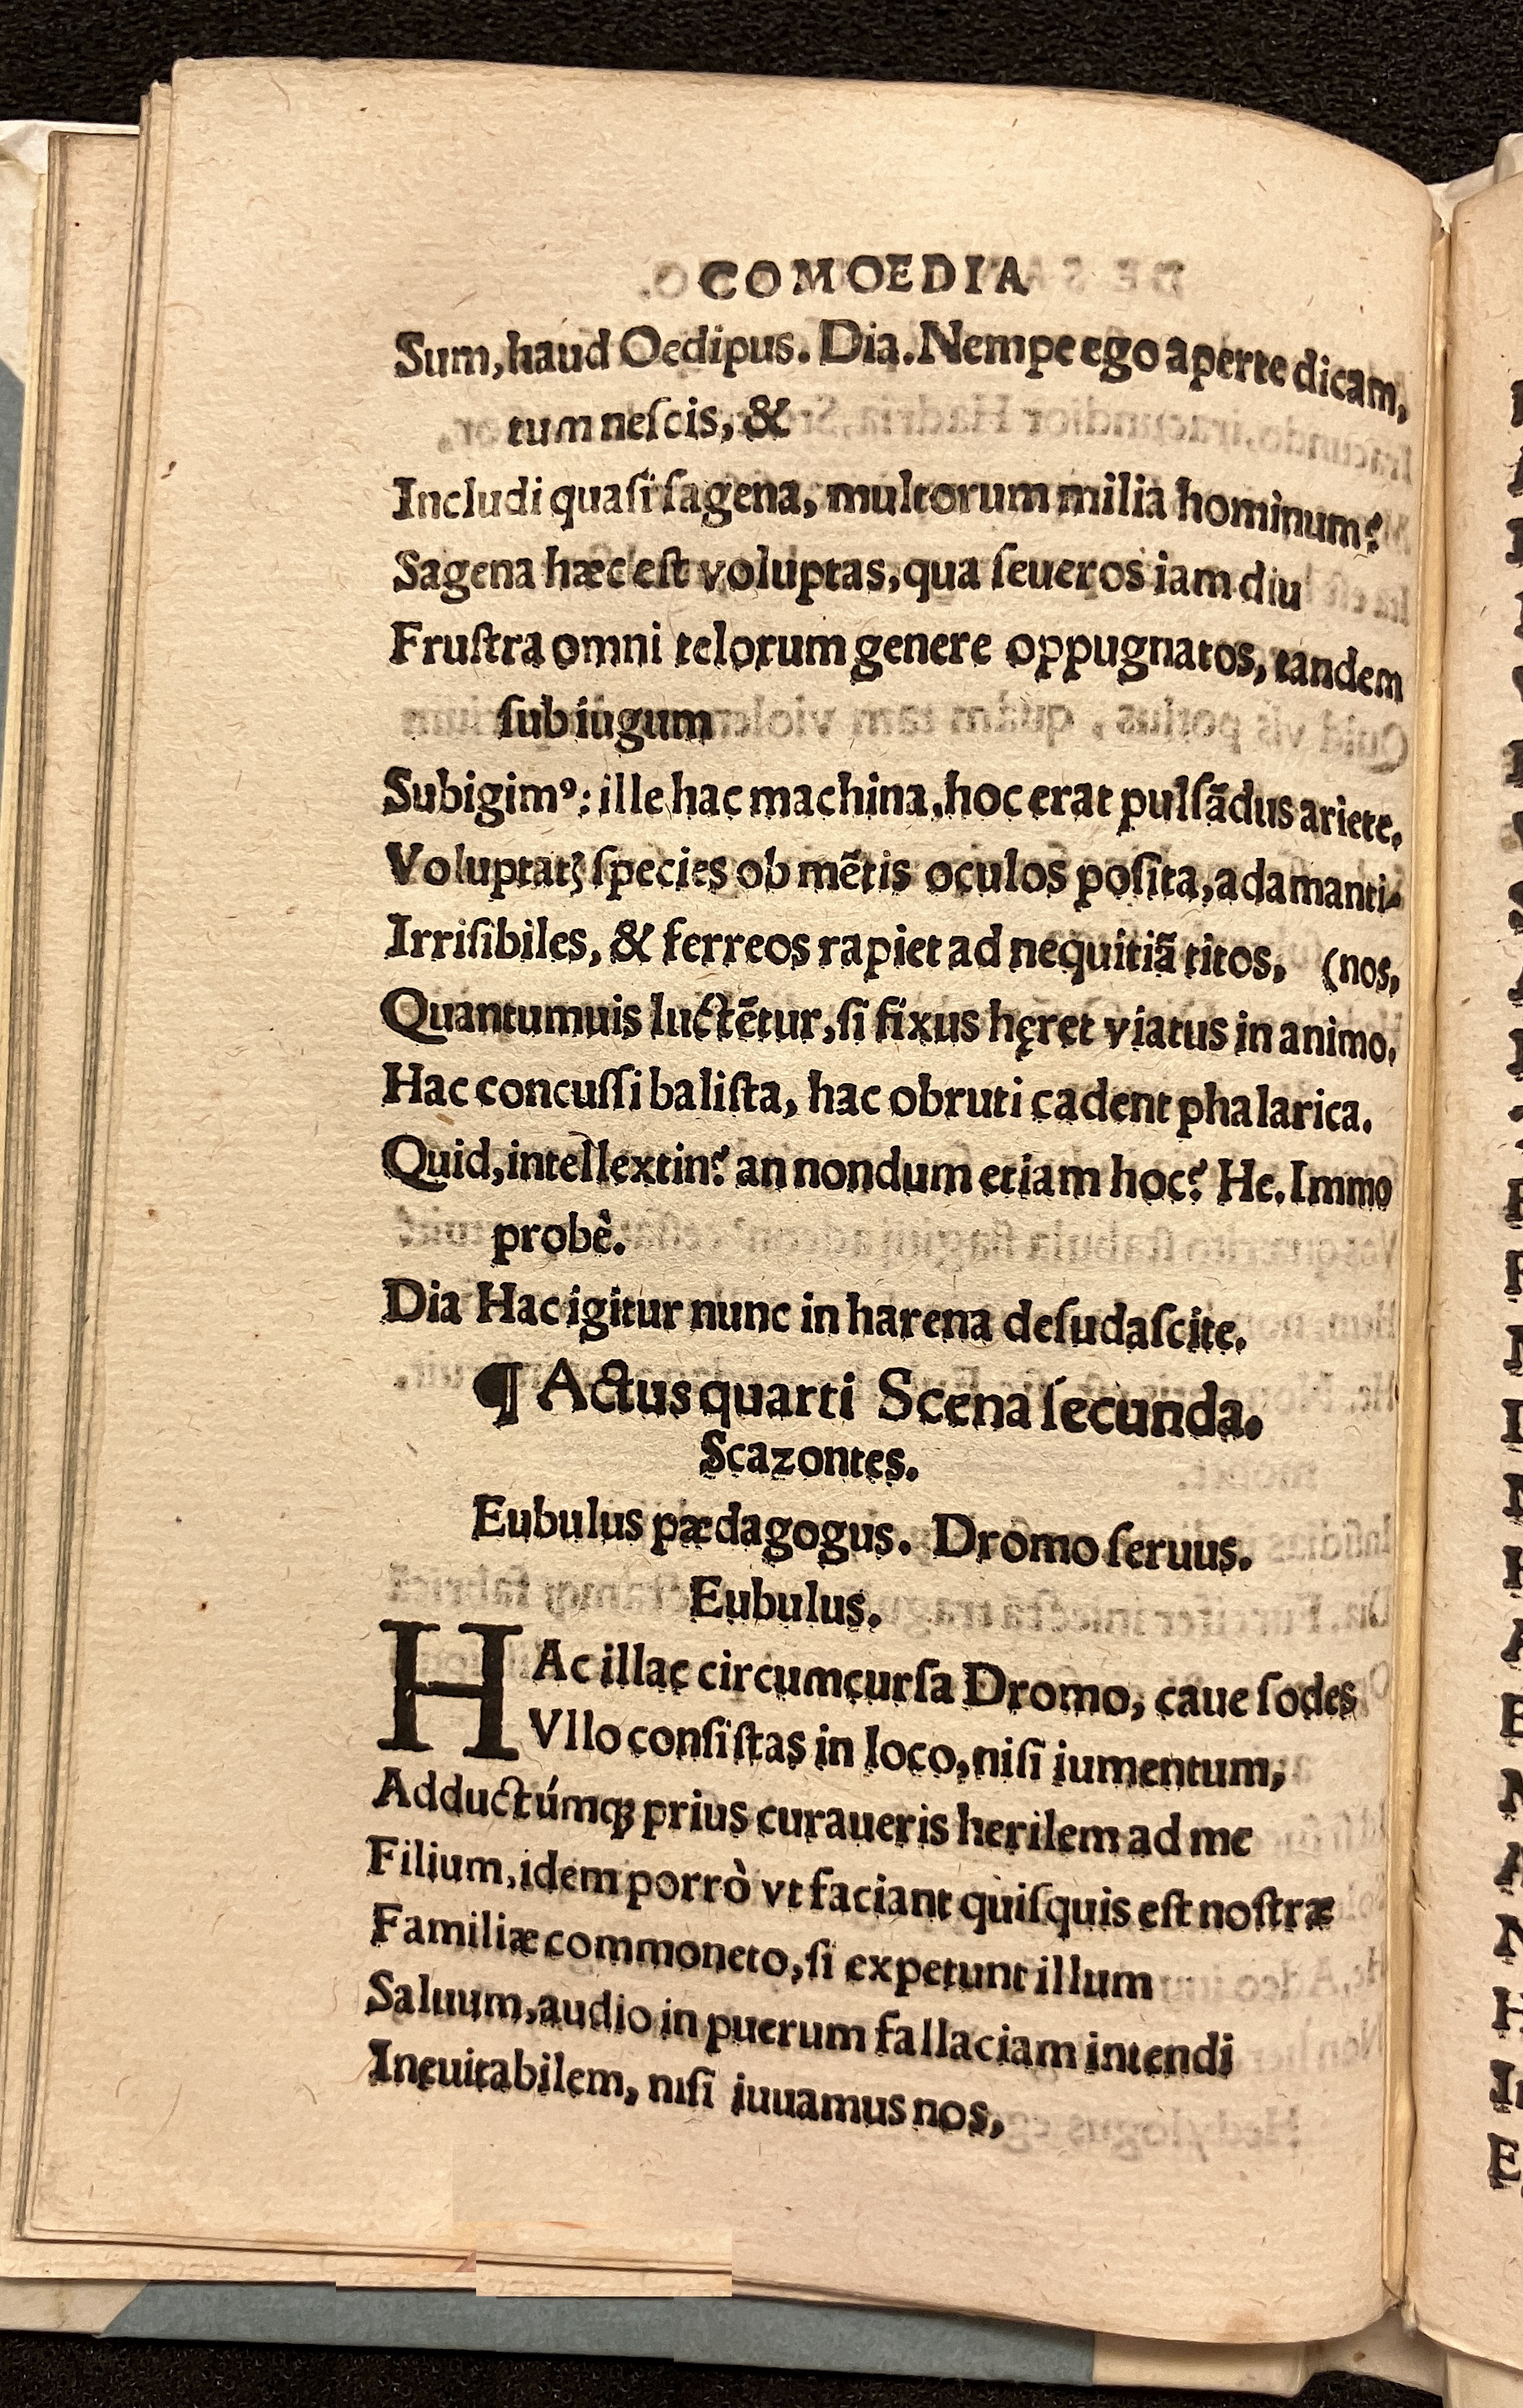 COMOEDIA
Sum, haud Oedipus. Dia. Nempe ego aperte dicam,
tum neſcis, &
Includi quaſi ſagena, multorum milia hominum?
Sagena hæc eſt voluptas, qua ſeueros iam diu
Fruſtra omni telorum genere oppugnatos, tandem
ſub iugum
Subigimꝰ: ille hac machina, hoc erat pulſādus ariete.
Voluptatꝭ ſpecies ob mētis oculos poſita, adamanti-
Irriſibiles, & ferreos rapiet ad nequitiā titos, (nos,
Quantumuis luctētur, ſi fixus hęret viatus in animo.
Hac concuſſi baliſta, hac obruti cadent phalarica.
Quid, intellextin? an nondum etiam hoc? He. Immo
probè.
Dia Hac igitur nunc in harena deſudaſcite.
¶ Actus quarti Scena ſecunda.
Scazontes.
Eubulus pædagogus. Dromo ſeruus.
Eubulus.
HAc illac circumcurſa Dromo, caue ſodes
Vllo conſiſtas in loco, niſi iumentum,
Adductúmqꝫ prius curaueris herilem ad me
Filium, idem porrò vt faciant quiſquis eſt noſtræ
Familiæ commoneto, ſi expetunt illum
Saluum, audio in puerum fallaciam intendi
Ineuitabilem, niſi iuuamus nos,